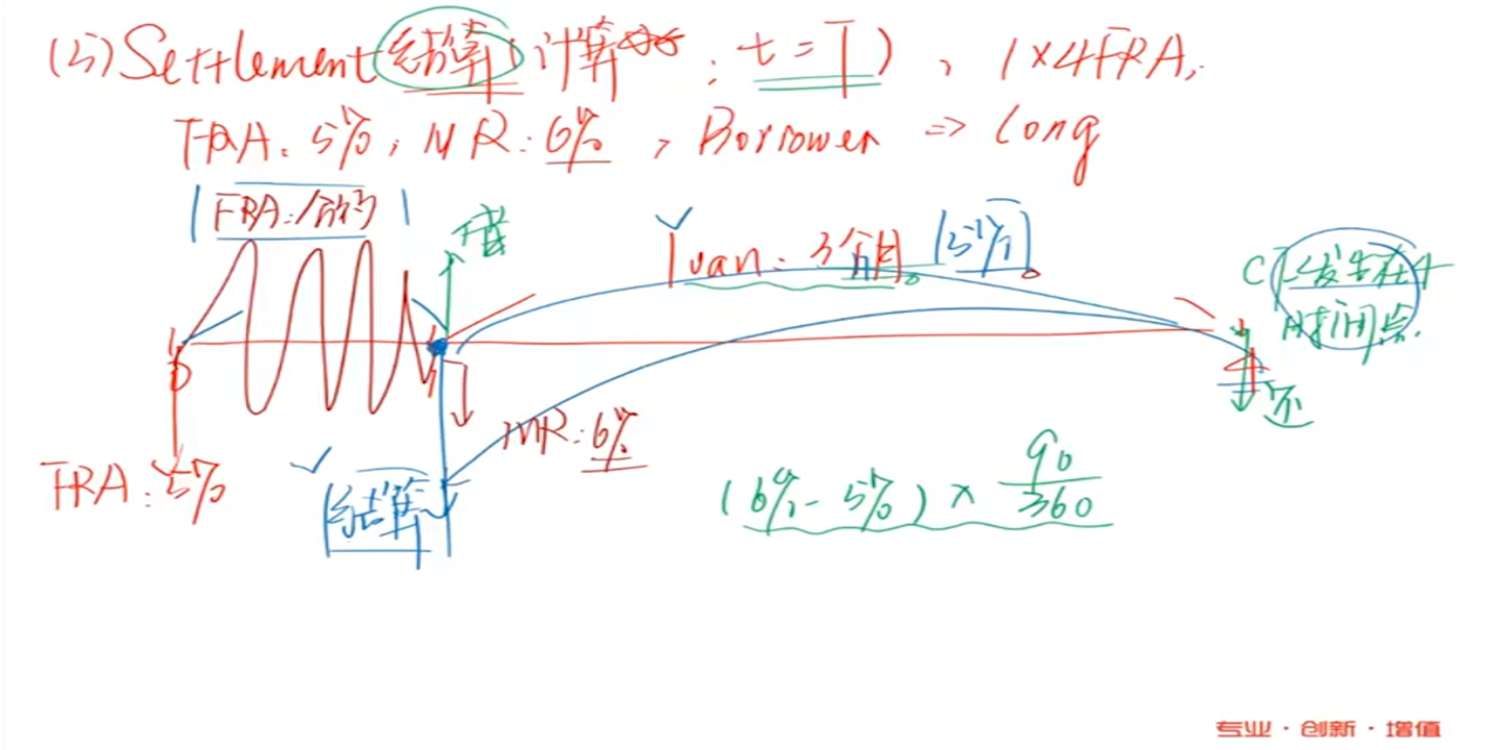 (5) Settlement (结算 计算 ; t=T), 1×4 FRA,
FRA: 5%, MR: 6%, Borrower ⇒ long
FRA: 1个月
借
loan: 3个月 (5%)
CF发生在4
时间点.
0
1
4
还
MR: 6%
FRA: 5%
结算
(6% - 5%) × 90/360
专业·创新·增值